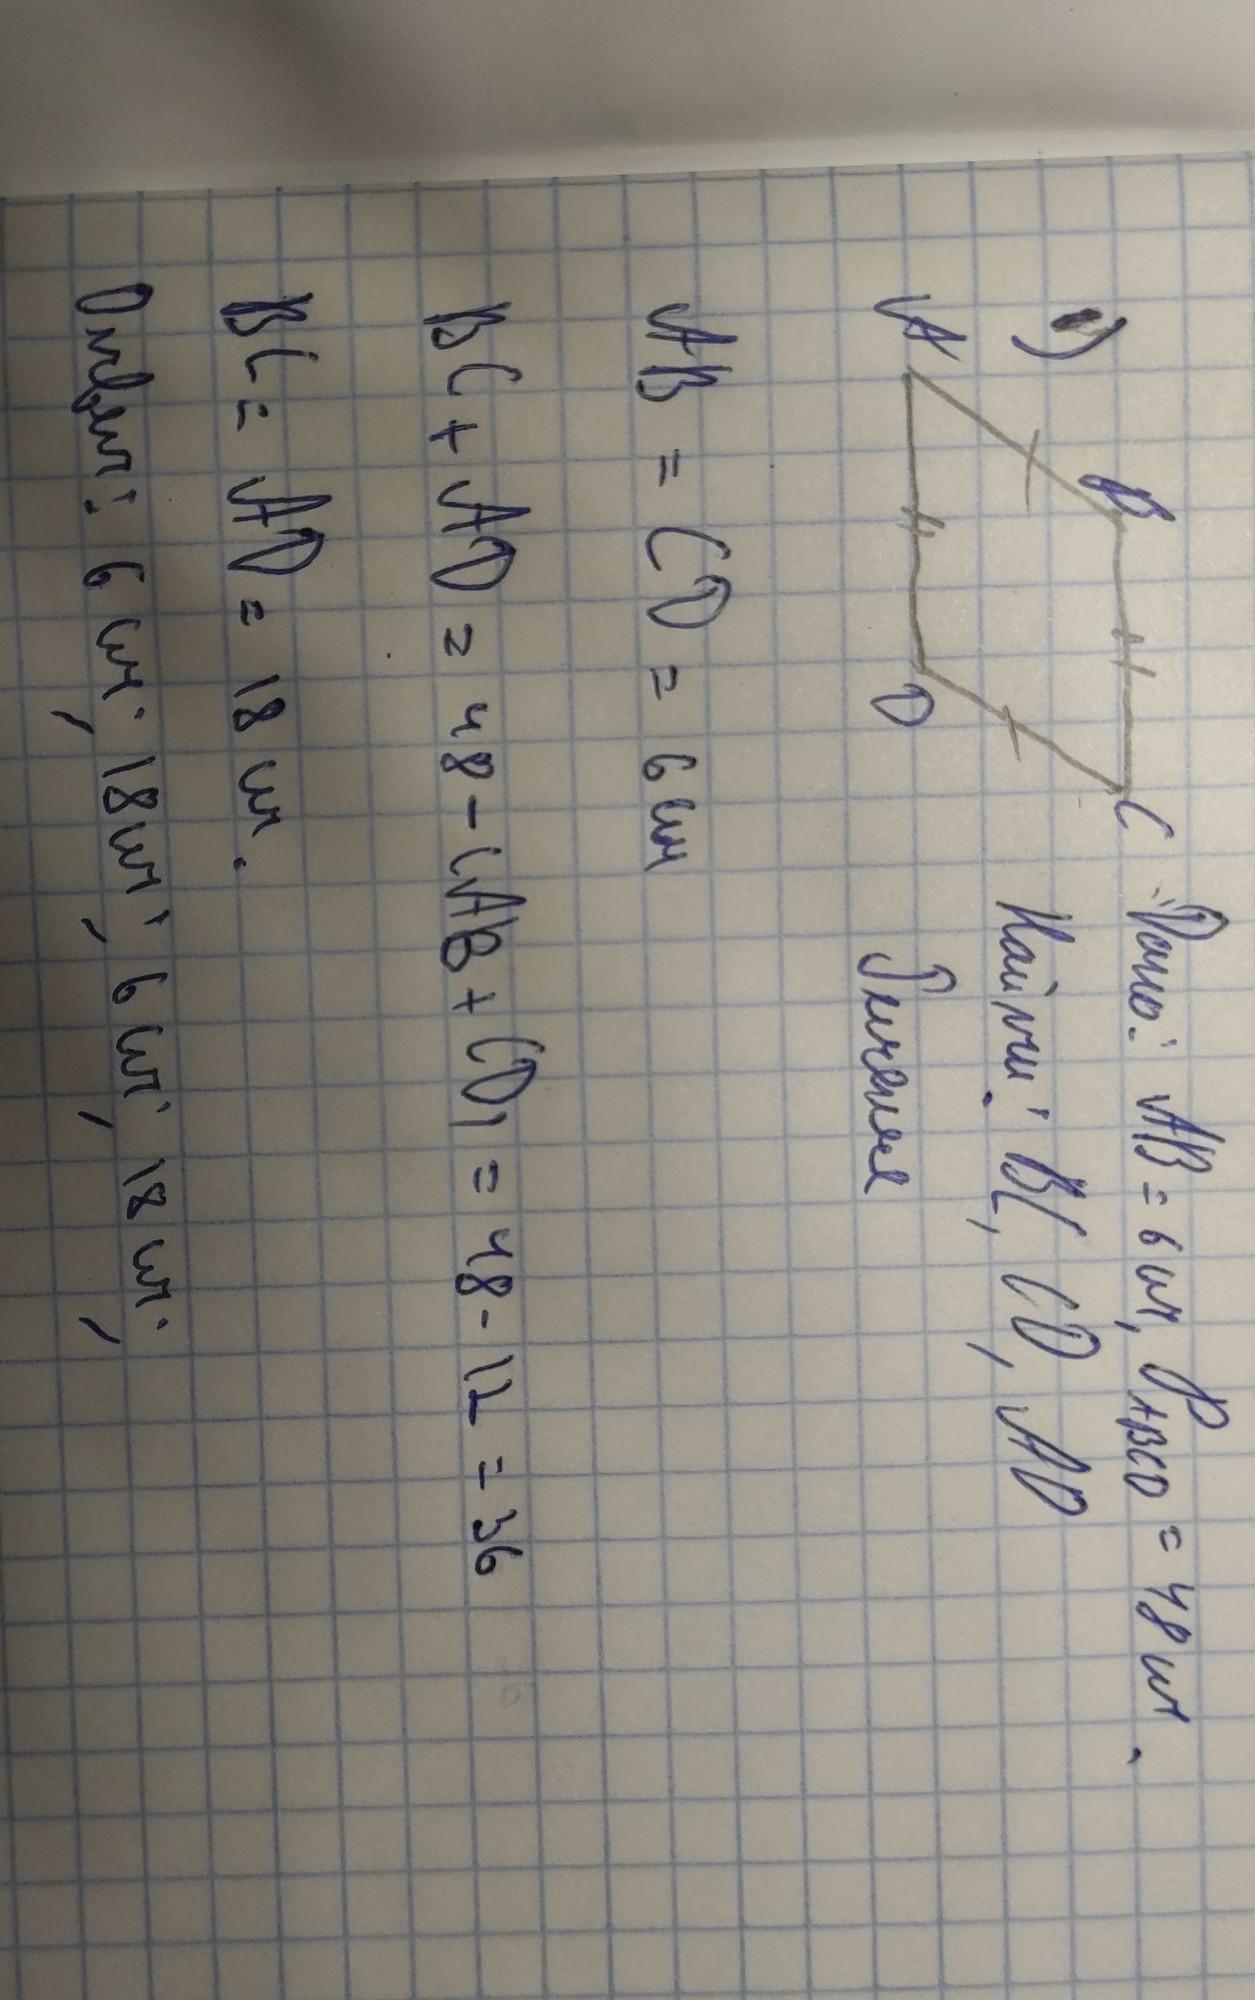 1)
A B C D
Дано: AB = 6 см, P ABCD = 48 см.
Найти: BC, CD, AD
Решение
AB = CD = 6 см
BC + AD = 48 - (AB + CD) = 48 - 12 = 36
BC = AD = 18 см.
Ответ: 6 см; 18 см; 6 см; 18 см;